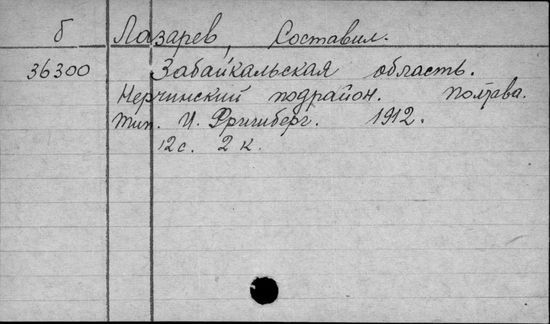 б Лазарев, Составил.
36300 Забайкальская область.
Нерчинский подрайон. Полтава.
Тип. И. Фришберг. 1912.
12 с. 2 к.